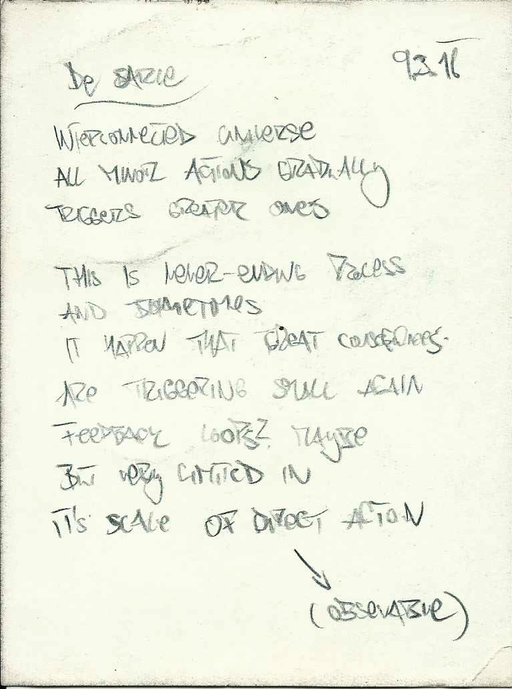 De
9.3.16
INTERCONNECTED UNIVERSE
ALL MINOR ACTIONS GRADUALLY
TRIGGERS GREATER ONES
THIS IS NEVER-ENDING PROCESS
AND SOMETIMES
IT HAPPEN THAT GREAT CONSEQUENCES
ARE TRIGGERING SMALL AGAIN
FEEDBACK LOOPS? MAYBE
BUT VERY LIMITED IN
IT'S SCALE OF DIRECT ACTION
(OBSERVABLE)